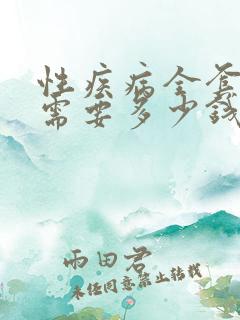 性疾病全套
需要多少錢
雨田君
未经同意禁止转载